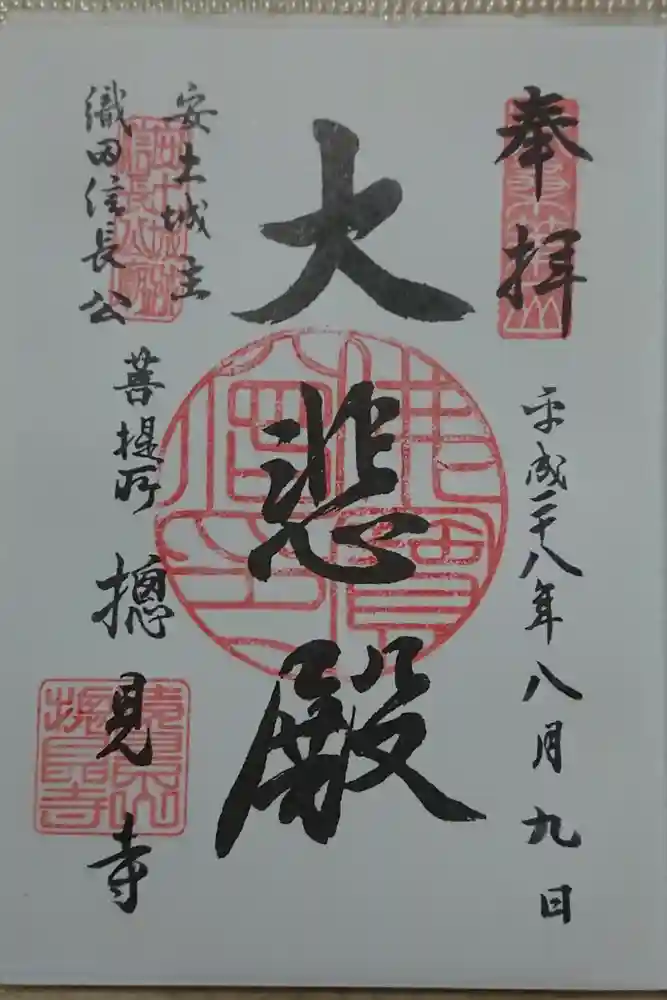 奉拝
平成二十八年八月九日
大悲殿
安土城主
織田信長公
菩提所 摠見寺
遠景山
摠見寺